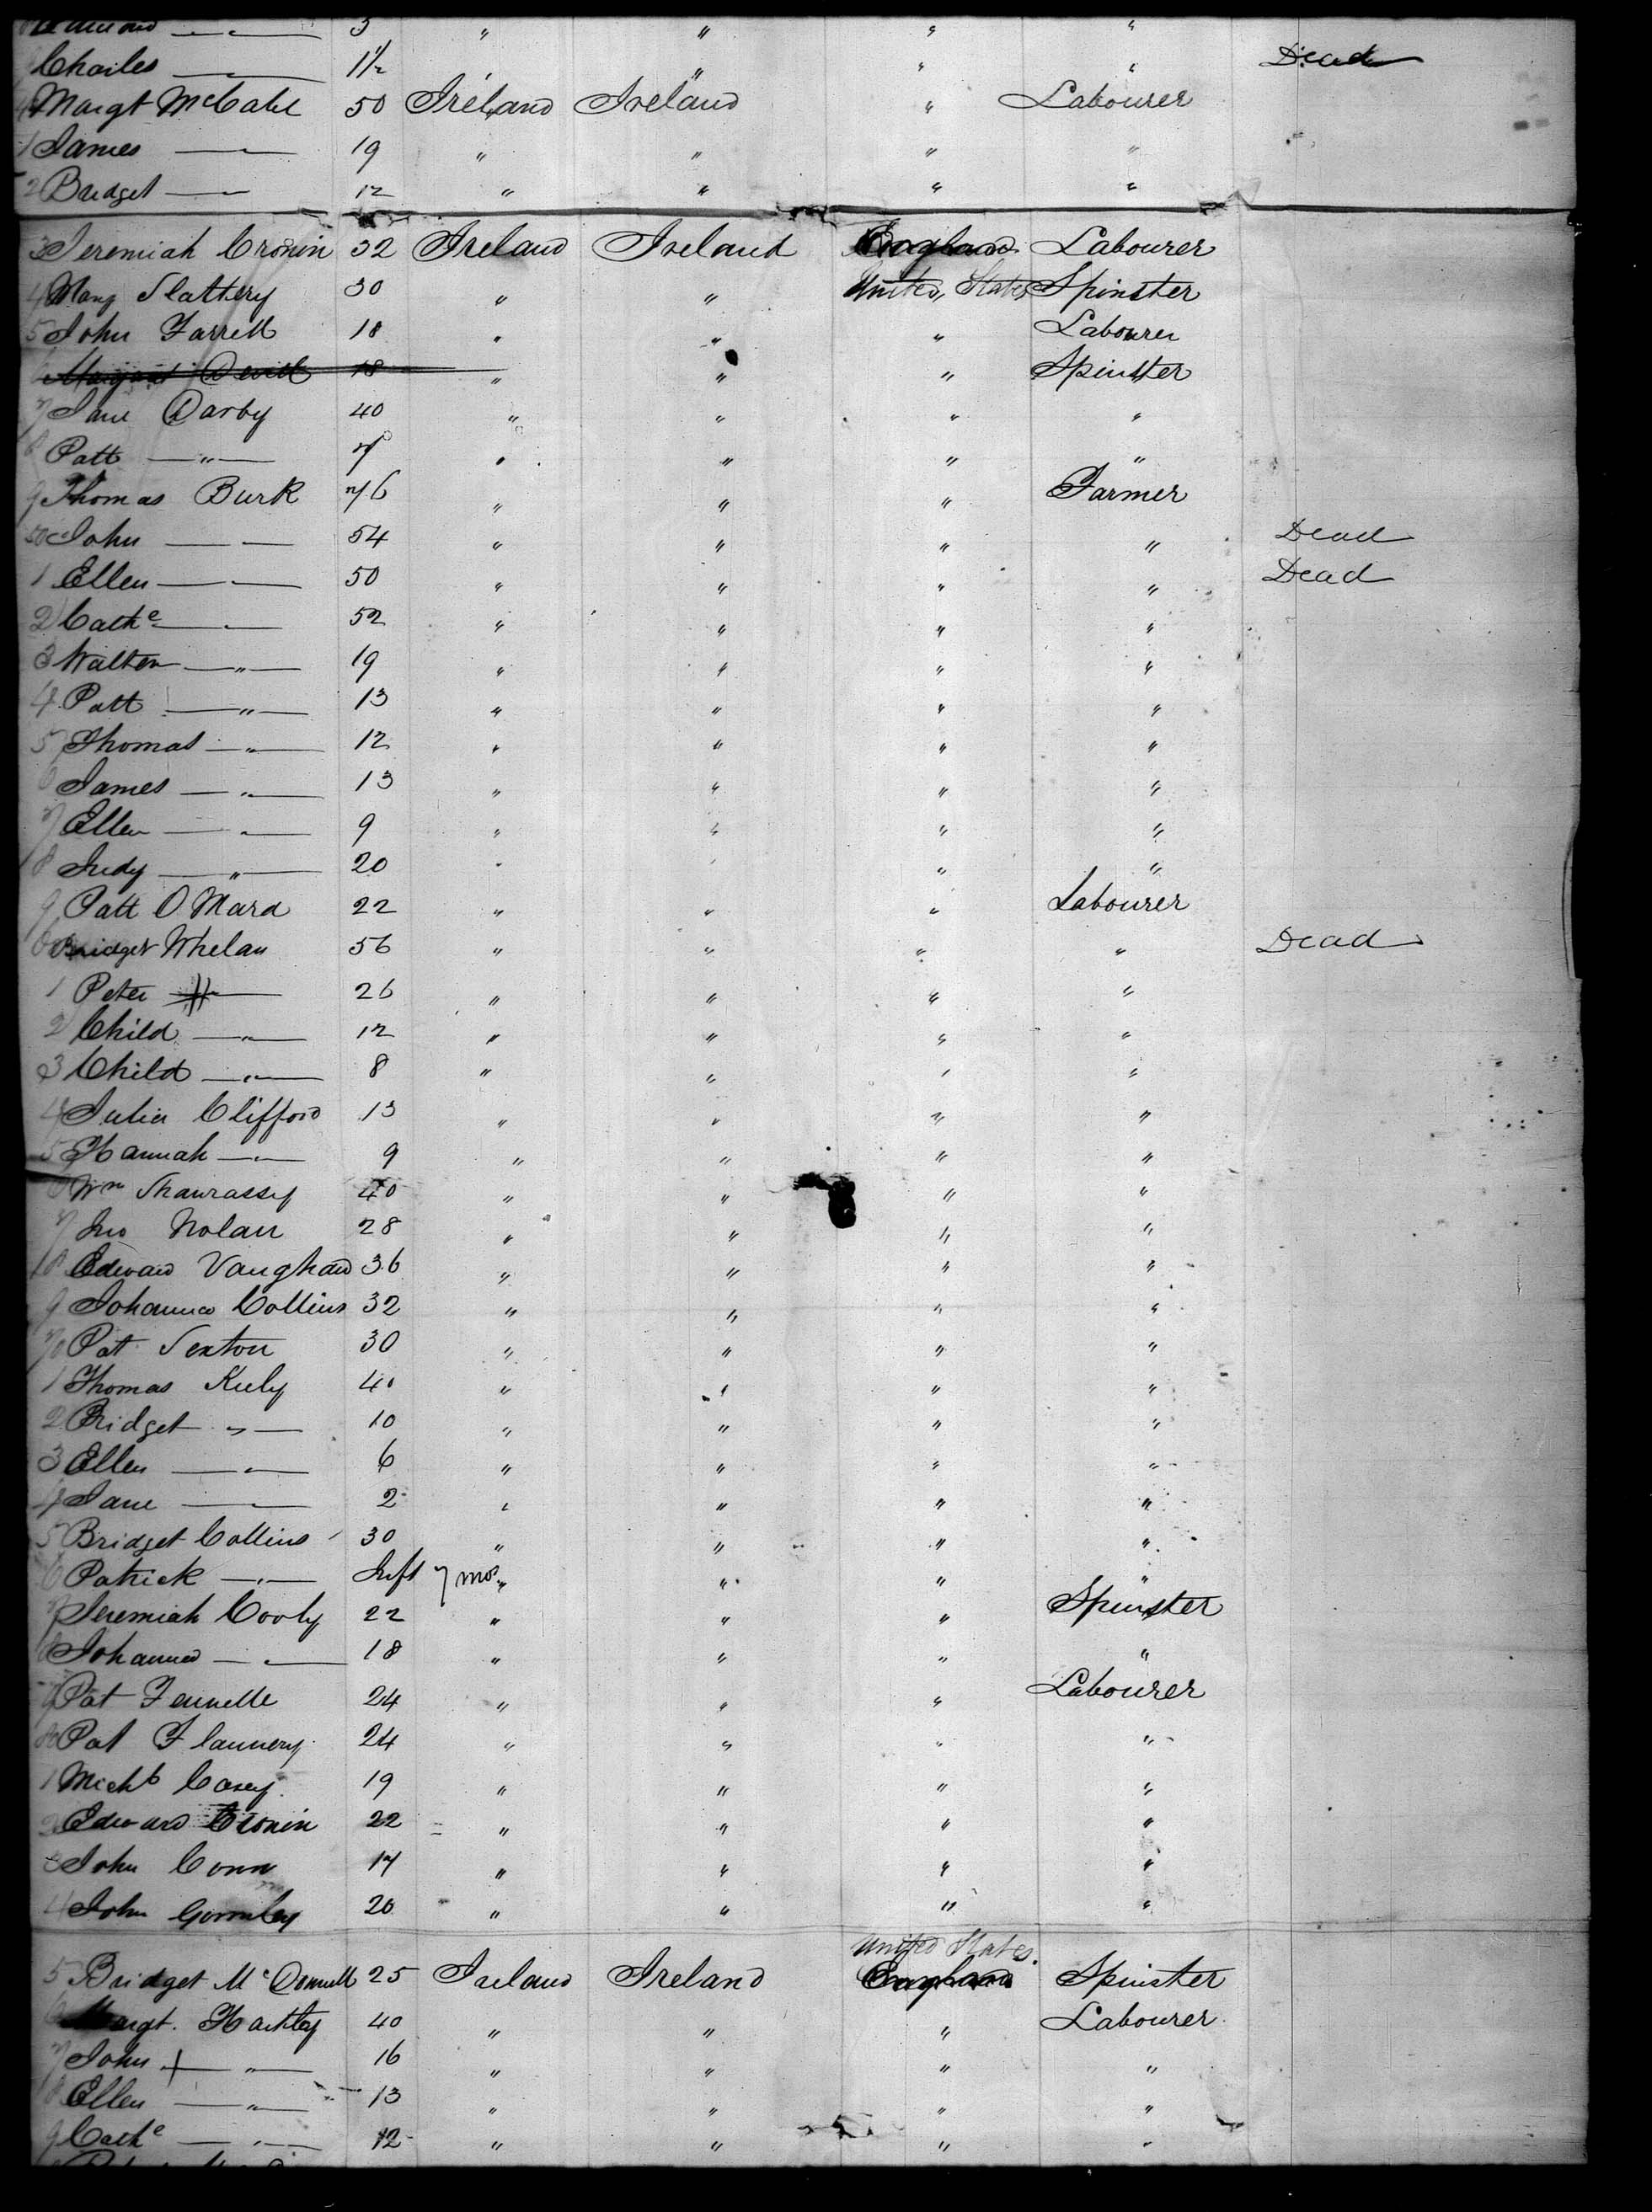 3 " " " "
Charles — " — 1½ " " " " Dead
Margt McCabe 50 Ireland Ireland " Labourer
1 James — " — 19 " " " "
2 Bridget — " — 12 " " " "
3 Jeremiah Cronin 32 Ireland Ireland England Labourer
4 Mary Slattery 30 " " United States Spinster
5 John Farrell 18 " " " Labourer
18 " " " Spinster
7 Jane Darby 40 " " " "
8 Patt — " — 7 " " " "
9 Thomas Burk 76 " " " Farmer
50 John — " — 54 " " " " Dead
1 Ellen — " — 50 " " " " Dead
2 Cathe — " — 52 " " " "
3 Walter — " — 19 " " " "
4 Patt — " — 13 " " " "
5 Thomas — " — 12 " " " "
6 James — " — 13 " " " "
7 Ellen — " — 9 " " " "
8 Judy — " — 20 " " " "
9 Patt O Mara 22 " " " Labourer
60 Bridget Whelan 56 " " " " Dead
1 Peter — " — 26 " " " "
2 Child — " — 12 " " " "
3 Child — " — 8 " " " "
4 Julia Clifford 13 " " " "
5 Hannah — " — 9 " " " "
6 Wm Shaurassy 40 " " " "
7 Jno Nolan 28 " " " "
8 Edward Vaughan 36 " " " "
9 Johanna Collins 32 " " " "
70 Pat Sexton 30 " " " "
1 Thomas Kiely 40 " " " "
2 Bridget — " — 10 " " " "
3 Ellen — " — 6 " " " "
4 Jane — " — 2 " " " "
5 Bridget Collins 30 " " " "
6 Patrick — " — Inft 7 mos " " " "
7 Jeremiah Cooly 22 " " " Spinster
8 Johanna — " — 18 " " " "
9 Pat Fennelle 24 " " " Labourer
80 Pat Flannery 24 " " " "
1 Michl Casey 19 " " " "
2 Edward Cronin 22 " " " "
3 John Conn 17 " " " "
4 John Gormley 20 " " " "
United States
5 Bridget McDonnell 25 Ireland Ireland England Spinster
6 Margt. 40 " " " Labourer
7 John — " — 16 " " " "
8 Ellen — " — 13 " " " "
9 Cathe — " — 12 " " " "